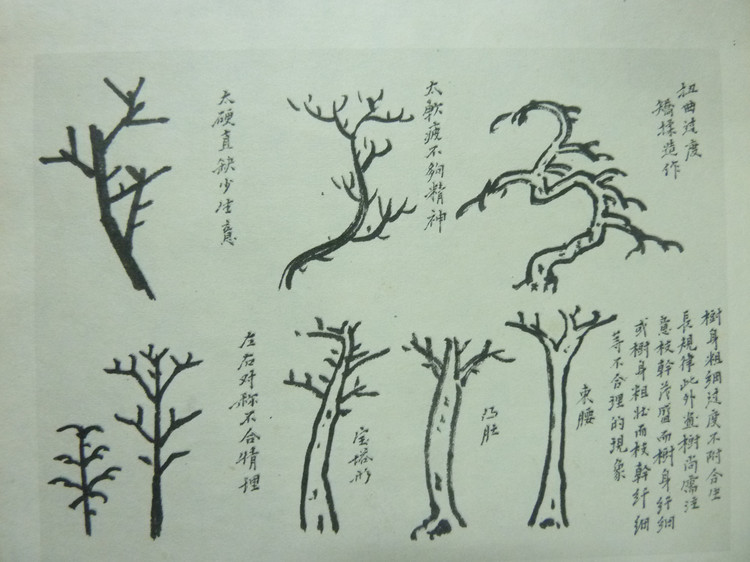 扭曲过度
矯揉造作
太軟疲不夠精神
太硬直缺少生意
樹身粗細过度不附合生
長規律此外畫樹尚需注
意枝幹茂盛而樹身纤細
或樹身粗壮而枝幹纤細
等不合理的現象
束腰
凸肚
宝塔形
左右对称不合情理